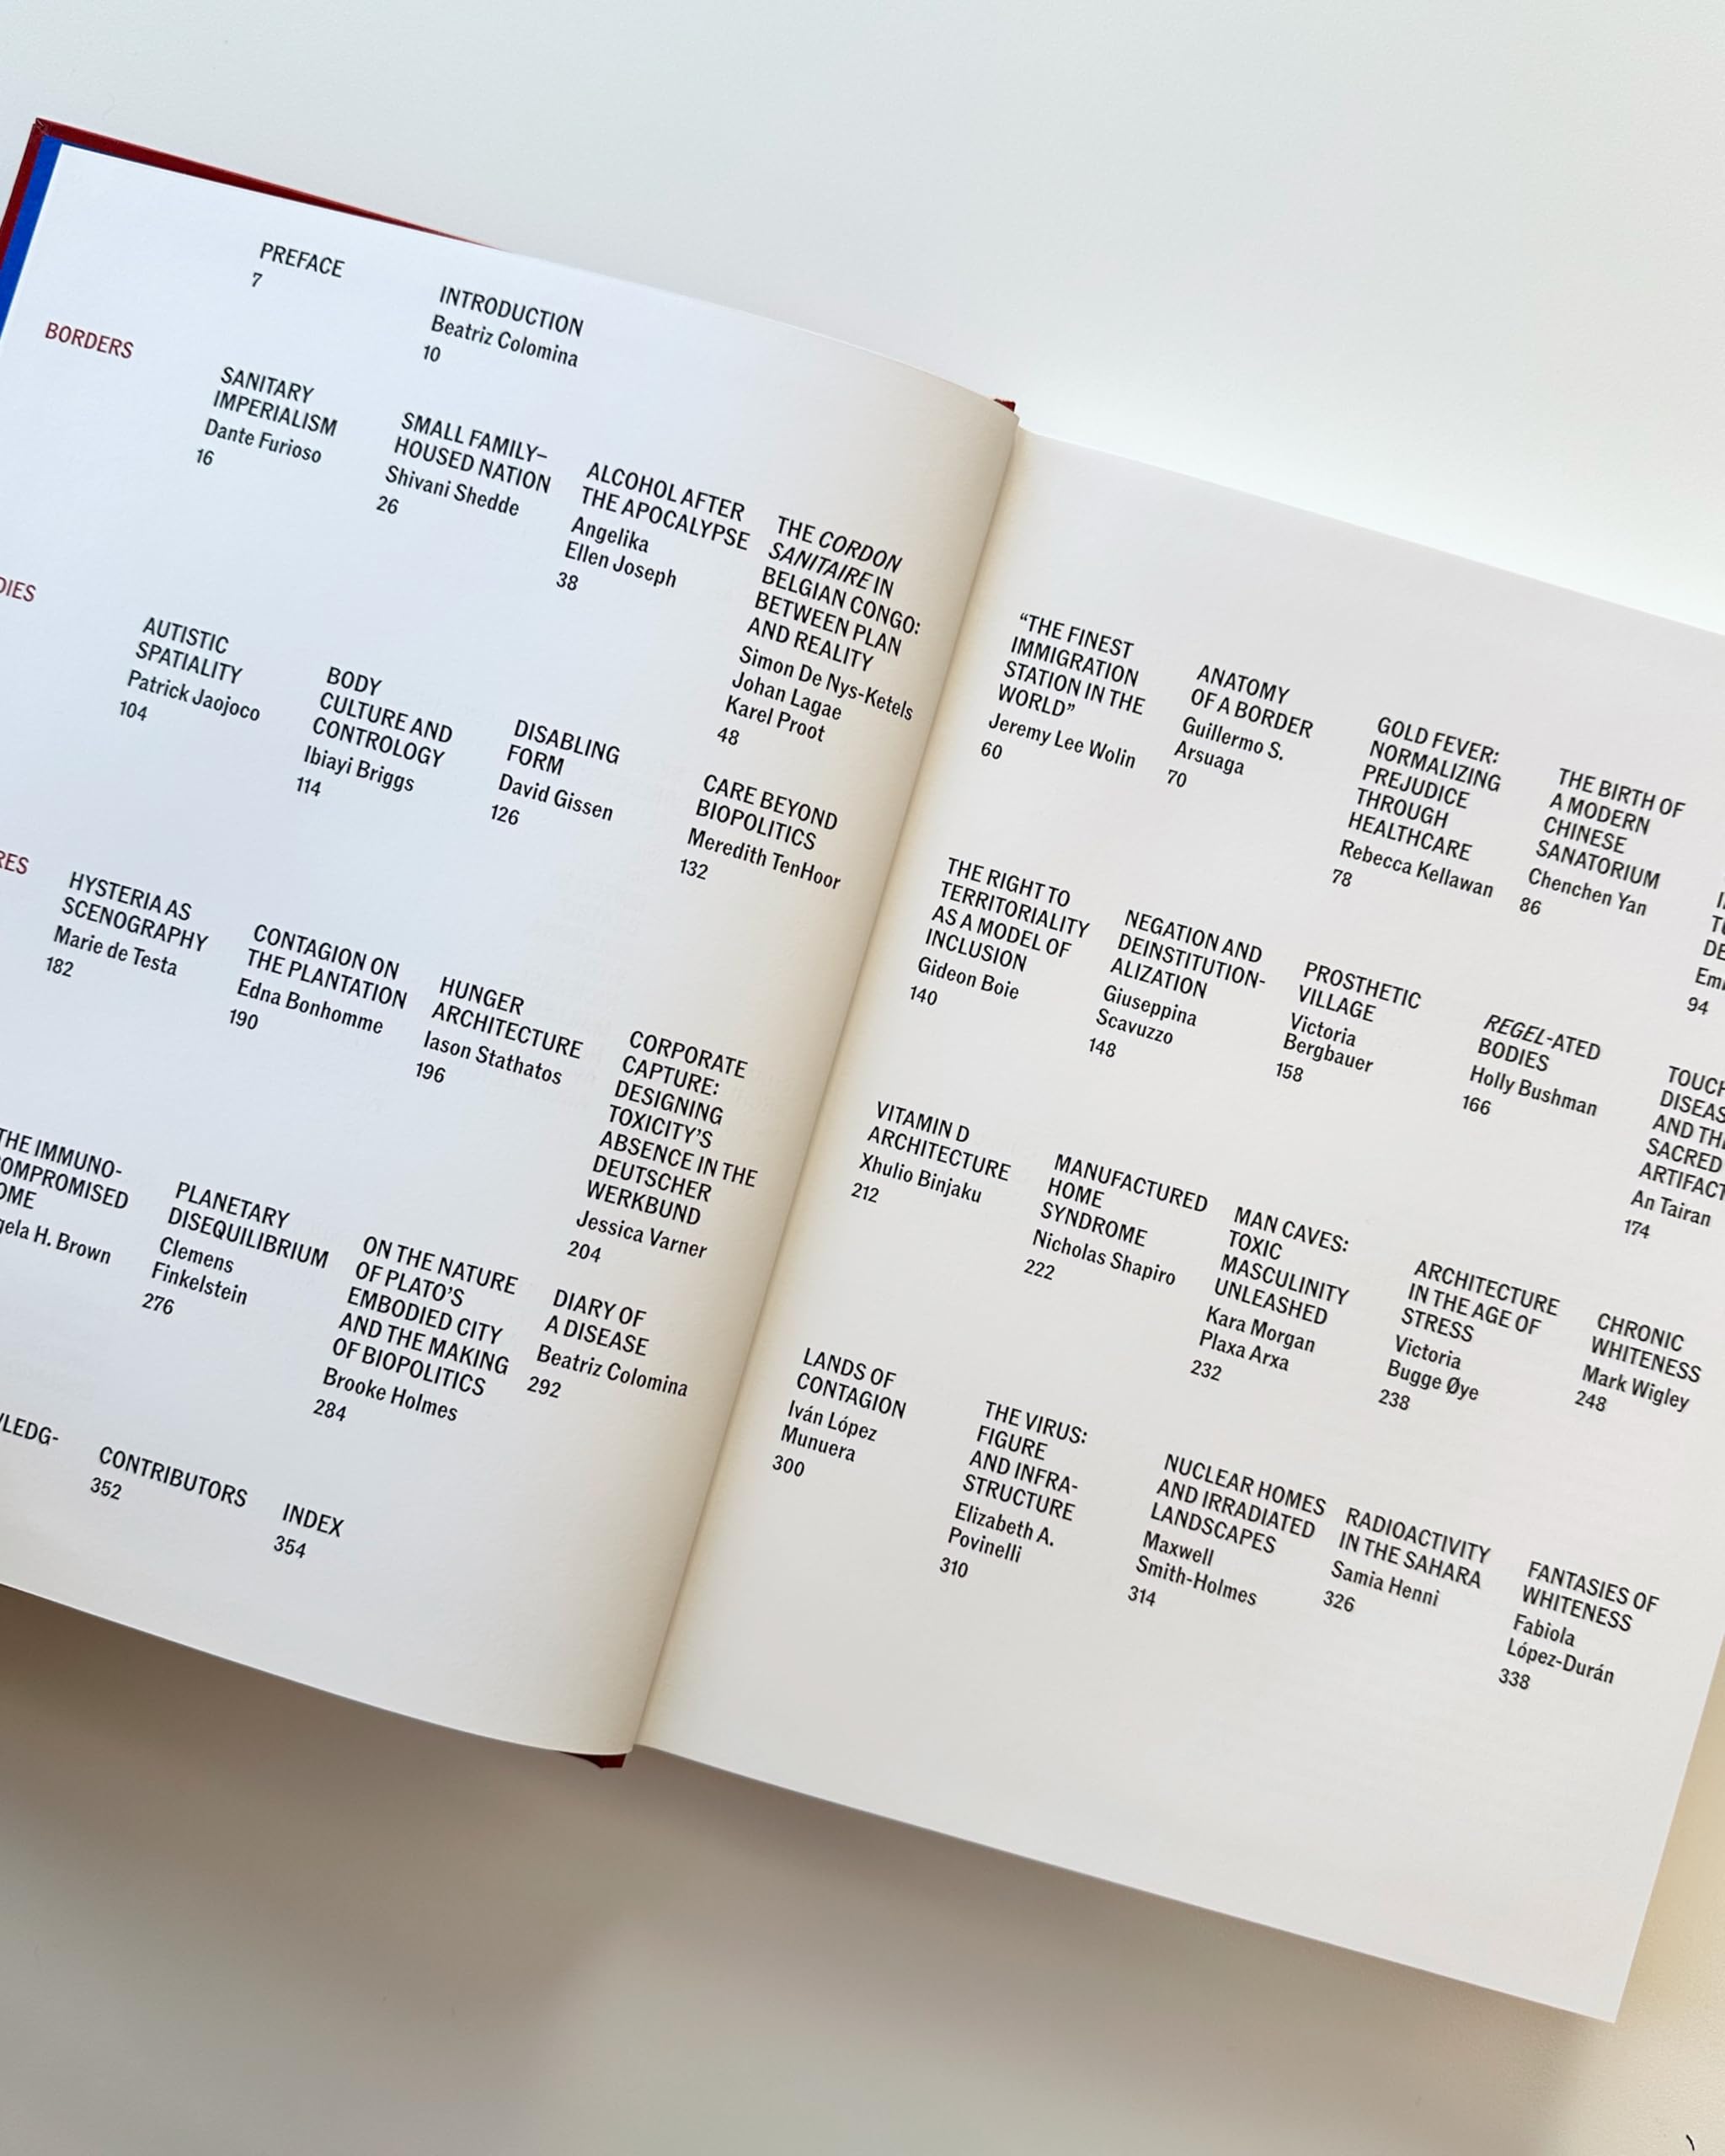 PREFACE
7
INTRODUCTION
Beatriz Colomina
10
BORDERS
SANITARY
IMPERIALISM
Dante Furioso
16
SMALL FAMILY–
HOUSED NATION
Shivani Shedde
26
ALCOHOL AFTER
THE APOCALYPSE
Angelika
Ellen Joseph
38
THE CORDON
SANITAIRE IN
BELGIAN CONGO:
BETWEEN PLAN
AND REALITY
Simon De Nys-Ketels
Johan Lagae
Karel Proot
48
DIES
AUTISTIC
SPATIALITY
Patrick Jaojoco
104
BODY
CULTURE AND
CONTROLOGY
Ibiayi Briggs
114
DISABLING
FORM
David Gissen
126
CARE BEYOND
BIOPOLITICS
Meredith TenHoor
132
RES
HYSTERIA AS
SCENOGRAPHY
Marie de Testa
182
CONTAGION ON
THE PLANTATION
Edna Bonhomme
190
HUNGER
ARCHITECTURE
Iason Stathatos
196
CORPORATE
CAPTURE:
DESIGNING
TOXICITY'S
ABSENCE IN THE
DEUTSCHER
WERKBUND
Jessica Varner
204
THE IMMUNO-
OMPROMISED
OME
gela H. Brown
PLANETARY
DISEQUILIBRIUM
Clemens
Finkelstein
276
ON THE NATURE
OF PLATO'S
EMBODIED CITY
AND THE MAKING
OF BIOPOLITICS
Brooke Holmes
284
DIARY OF
A DISEASE
Beatriz Colomina
292
LEDG-
CONTRIBUTORS
352
INDEX
354
“THE FINEST
IMMIGRATION
STATION IN THE
WORLD”
Jeremy Lee Wolin
60
ANATOMY
OF A BORDER
Guillermo S.
Arsuaga
70
GOLD FEVER:
NORMALIZING
PREJUDICE
THROUGH
HEALTHCARE
Rebecca Kellawan
78
THE BIRTH OF
A MODERN
CHINESE
SANATORIUM
Chenchen Yan
86
DE
Em
94
THE RIGHT TO
TERRITORIALITY
AS A MODEL OF
INCLUSION
Gideon Boie
140
NEGATION AND
DEINSTITUTION-
ALIZATION
Giuseppina
Scavuzzo
148
PROSTHETIC
VILLAGE
Victoria
Bergbauer
158
REGEL-ATED
BODIES
Holly Bushman
166
TOUCH
DISEAS
AND TH
SACRED
ARTIFACT
An Tairan
174
VITAMIN D
ARCHITECTURE
Xhulio Binjaku
212
MANUFACTURED
HOME
SYNDROME
Nicholas Shapiro
222
MAN CAVES:
TOXIC
MASCULINITY
UNLEASHED
Kara Morgan
Plaxa Arxa
232
ARCHITECTURE
IN THE AGE OF
STRESS
Victoria
Bugge Øye
238
CHRONIC
WHITENESS
Mark Wigley
248
LANDS OF
CONTAGION
Iván López
Munuera
300
THE VIRUS:
FIGURE
AND INFRA-
STRUCTURE
Elizabeth A.
Povinelli
310
NUCLEAR HOMES
AND IRRADIATED
LANDSCAPES
Maxwell
Smith-Holmes
314
RADIOACTIVITY
IN THE SAHARA
Samia Henni
326
FANTASIES OF
WHITENESS
Fabiola
López-Durán
338